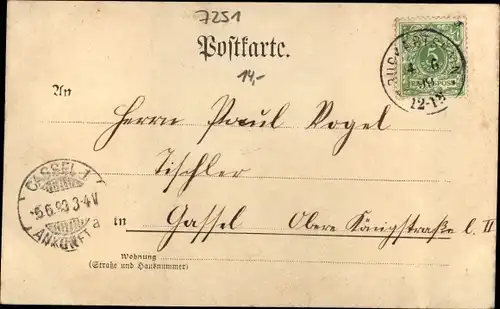 7251
Postkarte.
14,-
5
12-1N
An
Herrn Paul Vogel
Tischler
in Cassel Obere Königstraße
Wohnung
(Straße und Hausnummer)
CASSEL 1
5.6. 3-4V
a
ANKUNFT